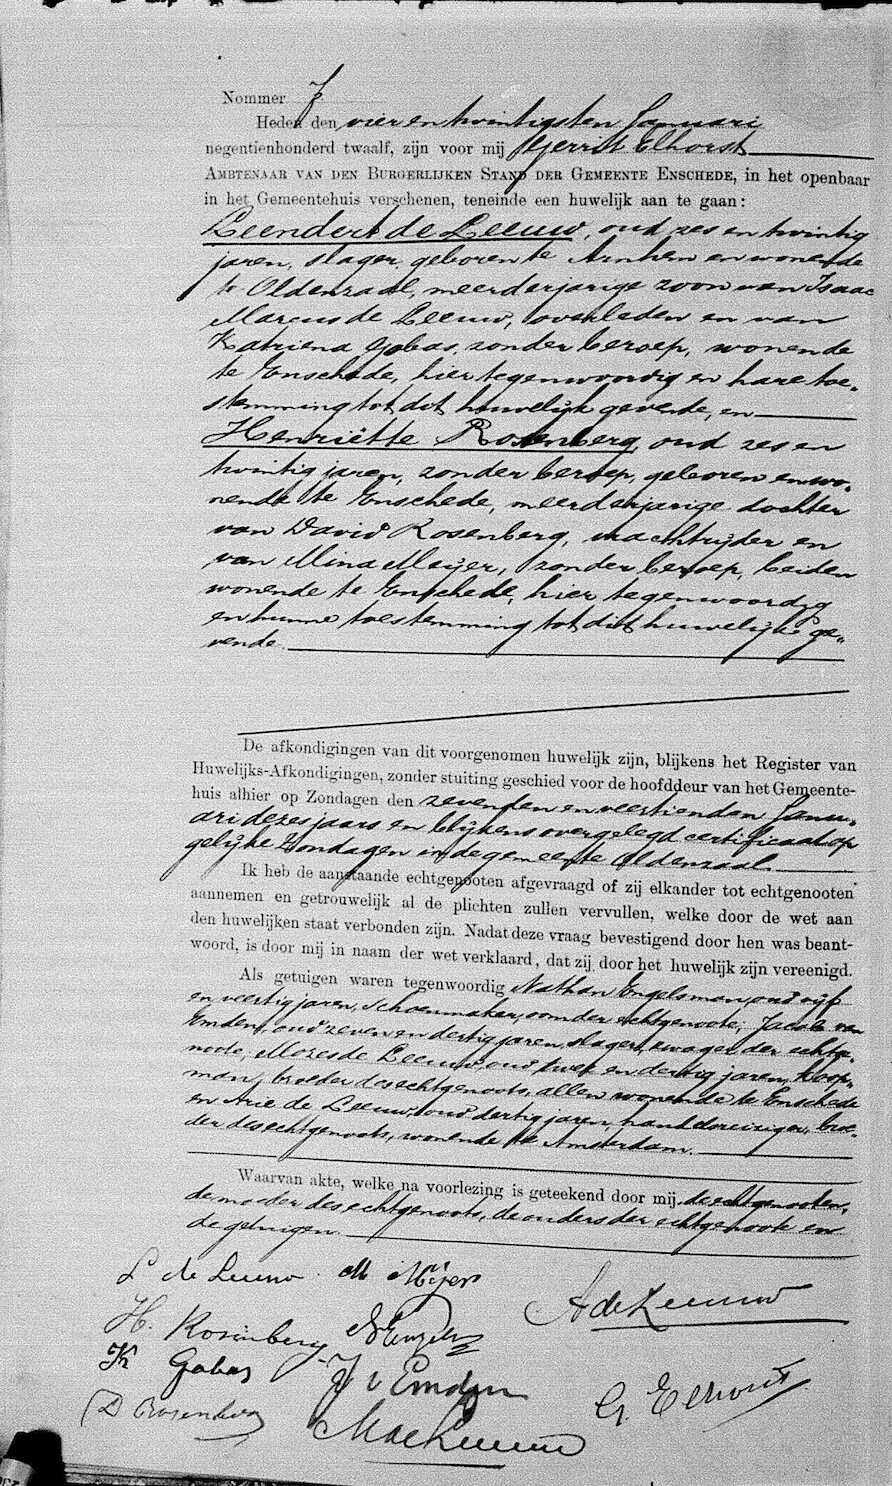 Nommer 7
Heden den vier en twintigsten Januari
negentienhonderd twaalf, zijn voor mij Gerrit Elhorst
AMBTENAAR VAN DEN BURGERLIJKEN STAND DER GEMEENTE ENSCHEDE, in het openbaar
in het Gemeentehuis verschenen, teneinde een huwelijk aan te gaan:
Leendert de Leeuw, oud zes en twintig
jaren, slager, geboren te Arnhem en wonende
te Oldenzaal, meerderjarige zoon van Isaac
Marcus de Leeuw, overleden en van
Katriena Gobas, zonder beroep, wonende
te Enschede, hier tegenwoordig en hare toe-
stemming tot dit huwelijk gevende, en
Henriëtte Rosenberg, oud zes en
twintig jaren, zonder beroep, geboren en wo-
nende te Enschede, meerderjarige dochter
van David Rosenberg, vrachtrijder en
van Mina Meijer, zonder beroep, beiden
wonende te Enschede, hier tegenwoordig
en hunne toestemming tot dit huwelijk ge-
vende.
De afkondigingen van dit voorgenomen huwelijk zijn, blijkens het Register van
Huwelijks-Afkondigingen, zonder stuiting geschied voor de hoofddeur van het Gemeente-
huis alhier op Zondagen den zevenden en veertienden Janu-
ari dezes jaars en blijkens overgelegd certificaat op
gelijke Zondagen in de gemeente Oldenzaal.
Ik heb de aanstaande echtgenooten afgevraagd of zij elkander tot echtgenooten
aannemen en getrouwelijk al de plichten zullen vervullen, welke door de wet aan
den huwelijken staat verbonden zijn. Nadat deze vraag bevestigend door hen was beant-
woord, is door mij in naam der wet verklaard, dat zij door het huwelijk zijn vereenigd.
Als getuigen waren tegenwoordig Nathan Engelsman, oud vijf
en veertig jaren, schoenmaker, oom der echtgenoote, Jacob van
Emden, oud zeven en dertig jaren, slager, zwager der echtge-
noote, Mozes de Leeuw, oud twee en dertig jaren, koop-
man, broeder des echtgenoots, allen wonende te Enschede
en Arie de Leeuw, oud dertig jaren, handelsreiziger, broe-
der des echtgenoots, wonende te Amsterdam.
Waarvan akte, welke na voorlezing is geteekend door mij, de echtgenooten,
de moeder des echtgenoots, de ouders der echtgenoote en
de getuigen.
L de Leeuw M Mijer
A de Leeuw
H. Rosenberg N Engels
K Gobas J v Emden
G. Elhorst
D Rosenberg
M de Leeuw